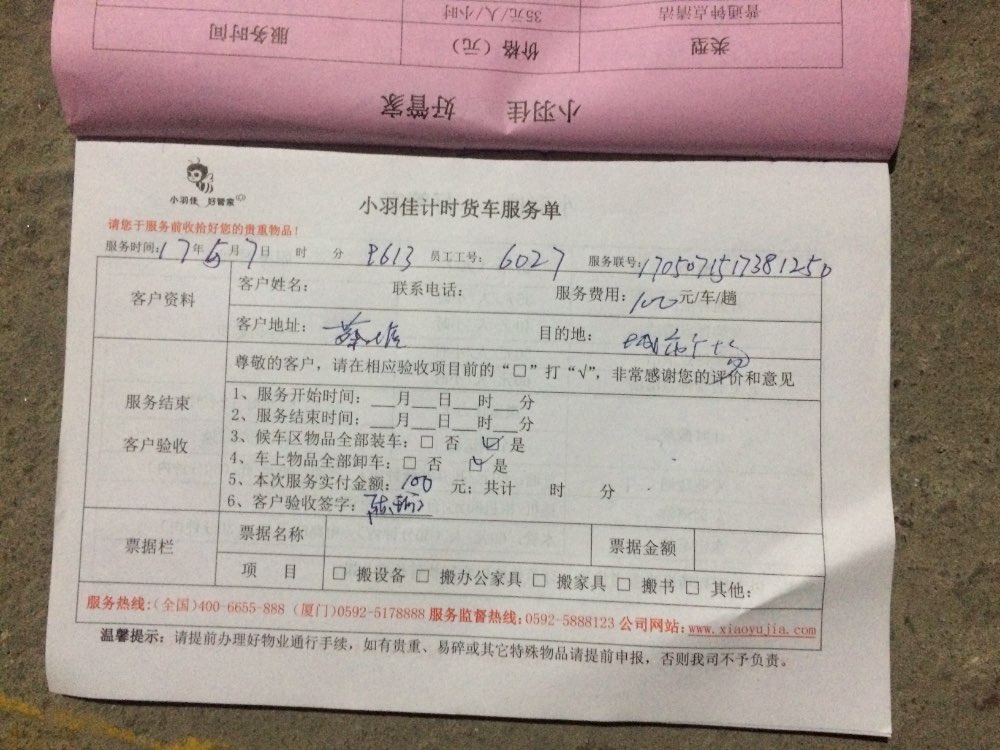 普通钟点清洁 35元/人/小时
类型 价格（元） 服务时间
小羽佳 好管家
小羽佳 好管家
小羽佳计时货车服务单
请您于服务前收拾好您的贵重物品！
服务时间：17年5月7日 时 分 9613 员工工号：6027 服务联号：1705071517381250
客户资料
客户姓名： 联系电话： 服务费用：100元/车/趟
客户地址： 目的地：
服务结束
客户验收
尊敬的客户，请在相应验收项目前的“□”打“√”，非常感谢您的评价和意见
1、服务开始时间：___月___日___时___分
2、服务结束时间：___月___日___时___分
3、候车区物品全部装车：□ 否 ☑ 是
4、车上物品全部卸车：□ 否 ☑ 是
5、本次服务实付金额：100 元；共计 时 分
6、客户验收签字：
票据栏
票据名称 票据金额
项 目 □ 搬设备 □ 搬办公家具 □ 搬家具 □ 搬书 □ 其他：
服务热线：（全国）400-6655-888（厦门）0592-5178888 服务监督热线：0592-5888123 公司网站：www.xiaoyujia.com
温馨提示：请提前办理好物业通行手续，如有贵重、易碎或其它特殊物品请提前申报，否则我司不予负责。